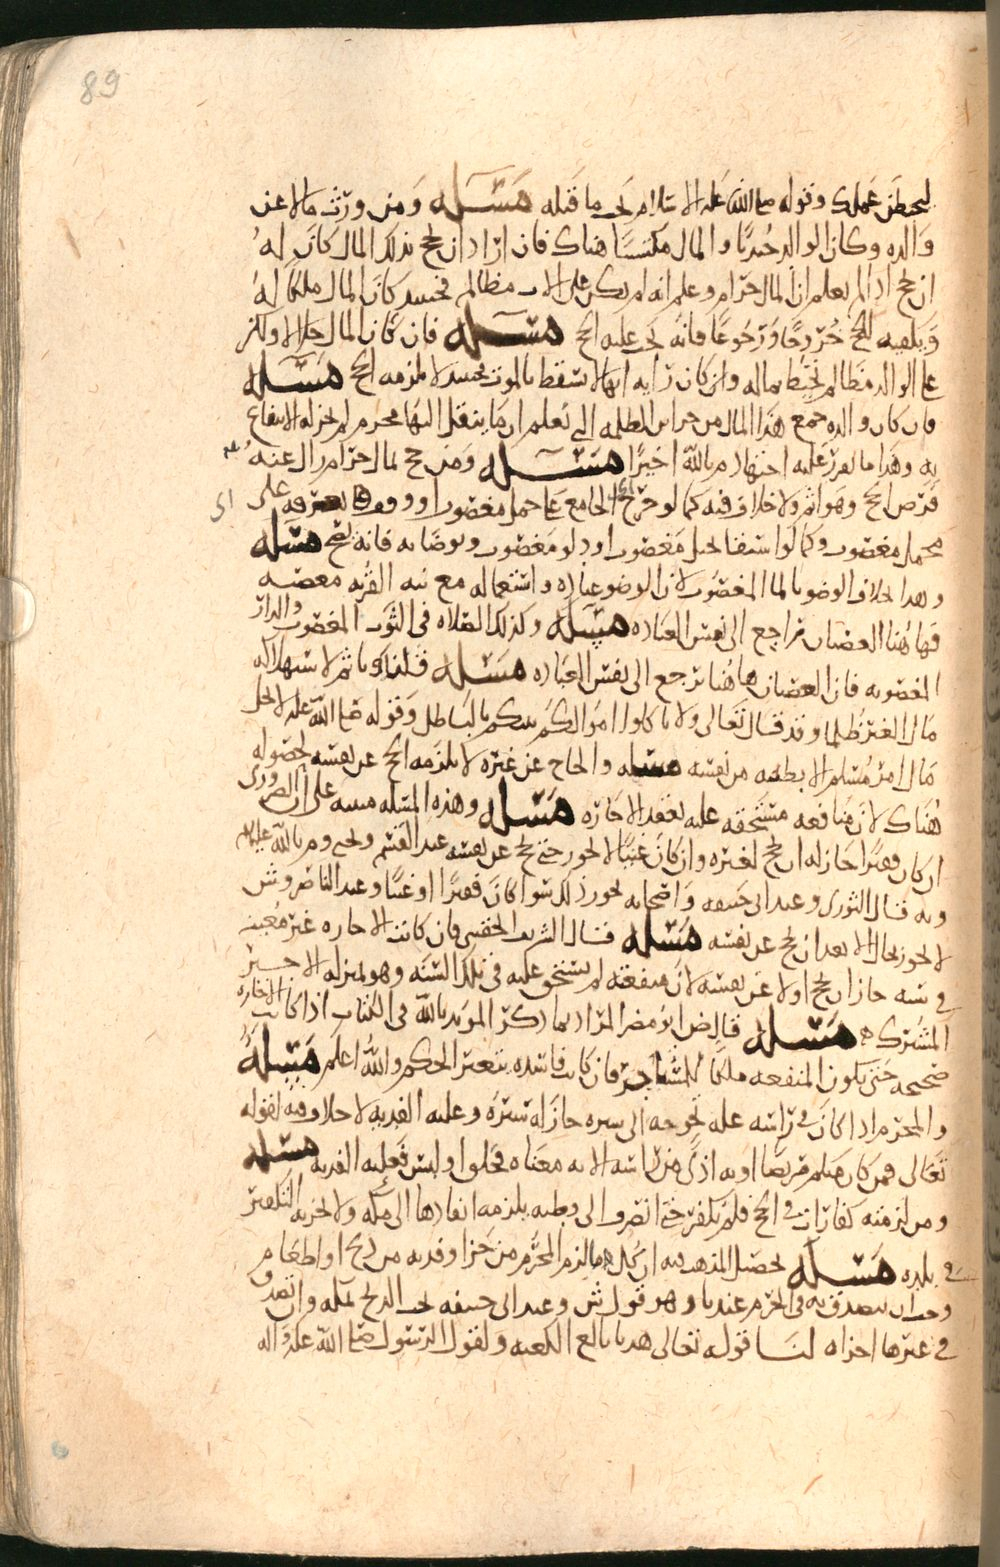 89
ليحبطن عملك وقوله صلى الله عليه الاسلام يجب ما قبله مسله ومن ورث مالا عن
والده وكان الوالد جنديا والمال مكتسبا هناك فان اراد ان يحج بذلك المال كان له
ان يحج اذا لم يعلم ان المال حرام وعلم انه لم يكن على الاب مظالم فحينيد كان المال ملكا له
ويكفيه للحج خروجا ورجوعا فانه يجب عليه الحج مسله فان كان المال حلالا ولكن
على الوالد مظالم تحيط بماله وان كان رايه انها لا تسقط بالموت فحينيد لا يلزمه الحج مسله
فان كان والده جمع هذا المال من الظلمه التي نعلم ان ما ينقل اليها محرم لم يجز له الانتفاع
به وهذا ما تقرر عليه اجتهاد م بالله اخيرا مسله ومن حج بمال حرام زال عنه
فرض الحج وهو اثم ولا خلاف فيه كما لو خرج الحاج مع على جمل مغصوب او وقوف بعرفه على
محمل مغصوب وكما لو استقا بحبل مغصوب او دلو مغصوب وتوضا به فانه يصح مسله
وهذا بخلاف الوضو بالما المغصوب لان الوضو عباده واستعماله مع نيه القربه معصيه
فهاهنا العصيان يراجع الى نفس العباده مسله وكذلك الصلاه في الثوب المغصوب والدار
المغصوبه فان العصيان هاهنا يرجع الى نفس العباده مسله قلنا ياثم لاستهلاكه
مال الغير ظلما وقد قال تعالى ولا تاكلوا اموالكم بينكم بالباطل وقوله صلى الله عليه لا يحل
مال امرئ مسلم الا بطيبه من نفسه مسله والحاج عن غيره لا يلزمه الحج عن نفسه لحصوله
هناك لان منافعه مستحقه عليه بعقد الاجاره مسله وهذه المسله مبنيه على ان الضروري
ان كان فقيرا جاز له ان يحج لغيره وان كان غنيا لا يجوز حتى يحج عن نفسه عند القسم ويحيى وم بالله عليهم
وبه قال الثوري وعند ابي حنيفه واصحابه يجوز ذلك سوا كان فقيرا او غنيا وعند الناصر وش
لا يجوز بحال الا بعد ان يحج عن نفسه مسله قال الشريف الحقيني فان كانت الاجاره غير معينه
في سنه جاز ان يحج اولا عن نفسه لان منفعته لم يستحق عليه في تلك السنه وهو بمنزله الاجير
المشترك مسله قال ض ابو مضر المراد بما ذكر المويد بالله في الكتاب اذا كانت الاجاره
صحيحه حتى يكون المنفعه ملكا للمستاجر فان كانت فاسده يتغير الحكم والله اعلم مسله
والمحرم اذا كان في راسه عله تحوجه الى ستره جاز له ستره وعليه الفديه لا خلاف فيه لقوله
تعالى فمن كان منكم مريضا او به اذى من راسه الايه معناه فحلق او لبس فعليه الفديه مسله
ومن لزمته كفارات في الحج فلم يكفر حتى انصرف الى وطنه يلزمه انفاذها الى مكه ولا يجزيه التكفير
في بلده مسله تحصيل المذهب فيه ان كل ما يلزم المحرم من جزا وفديه من ذبح او اطعام
وجب ان يتصدق به في الحرم عندنا وهو قول ش وعند ابي حنيفه يجب الذبح بمكه وان تصدق
في غيرها اجزاه لنا قوله تعالى هديا بالغ الكعبه ولقول الرسول صلى الله عليه واله